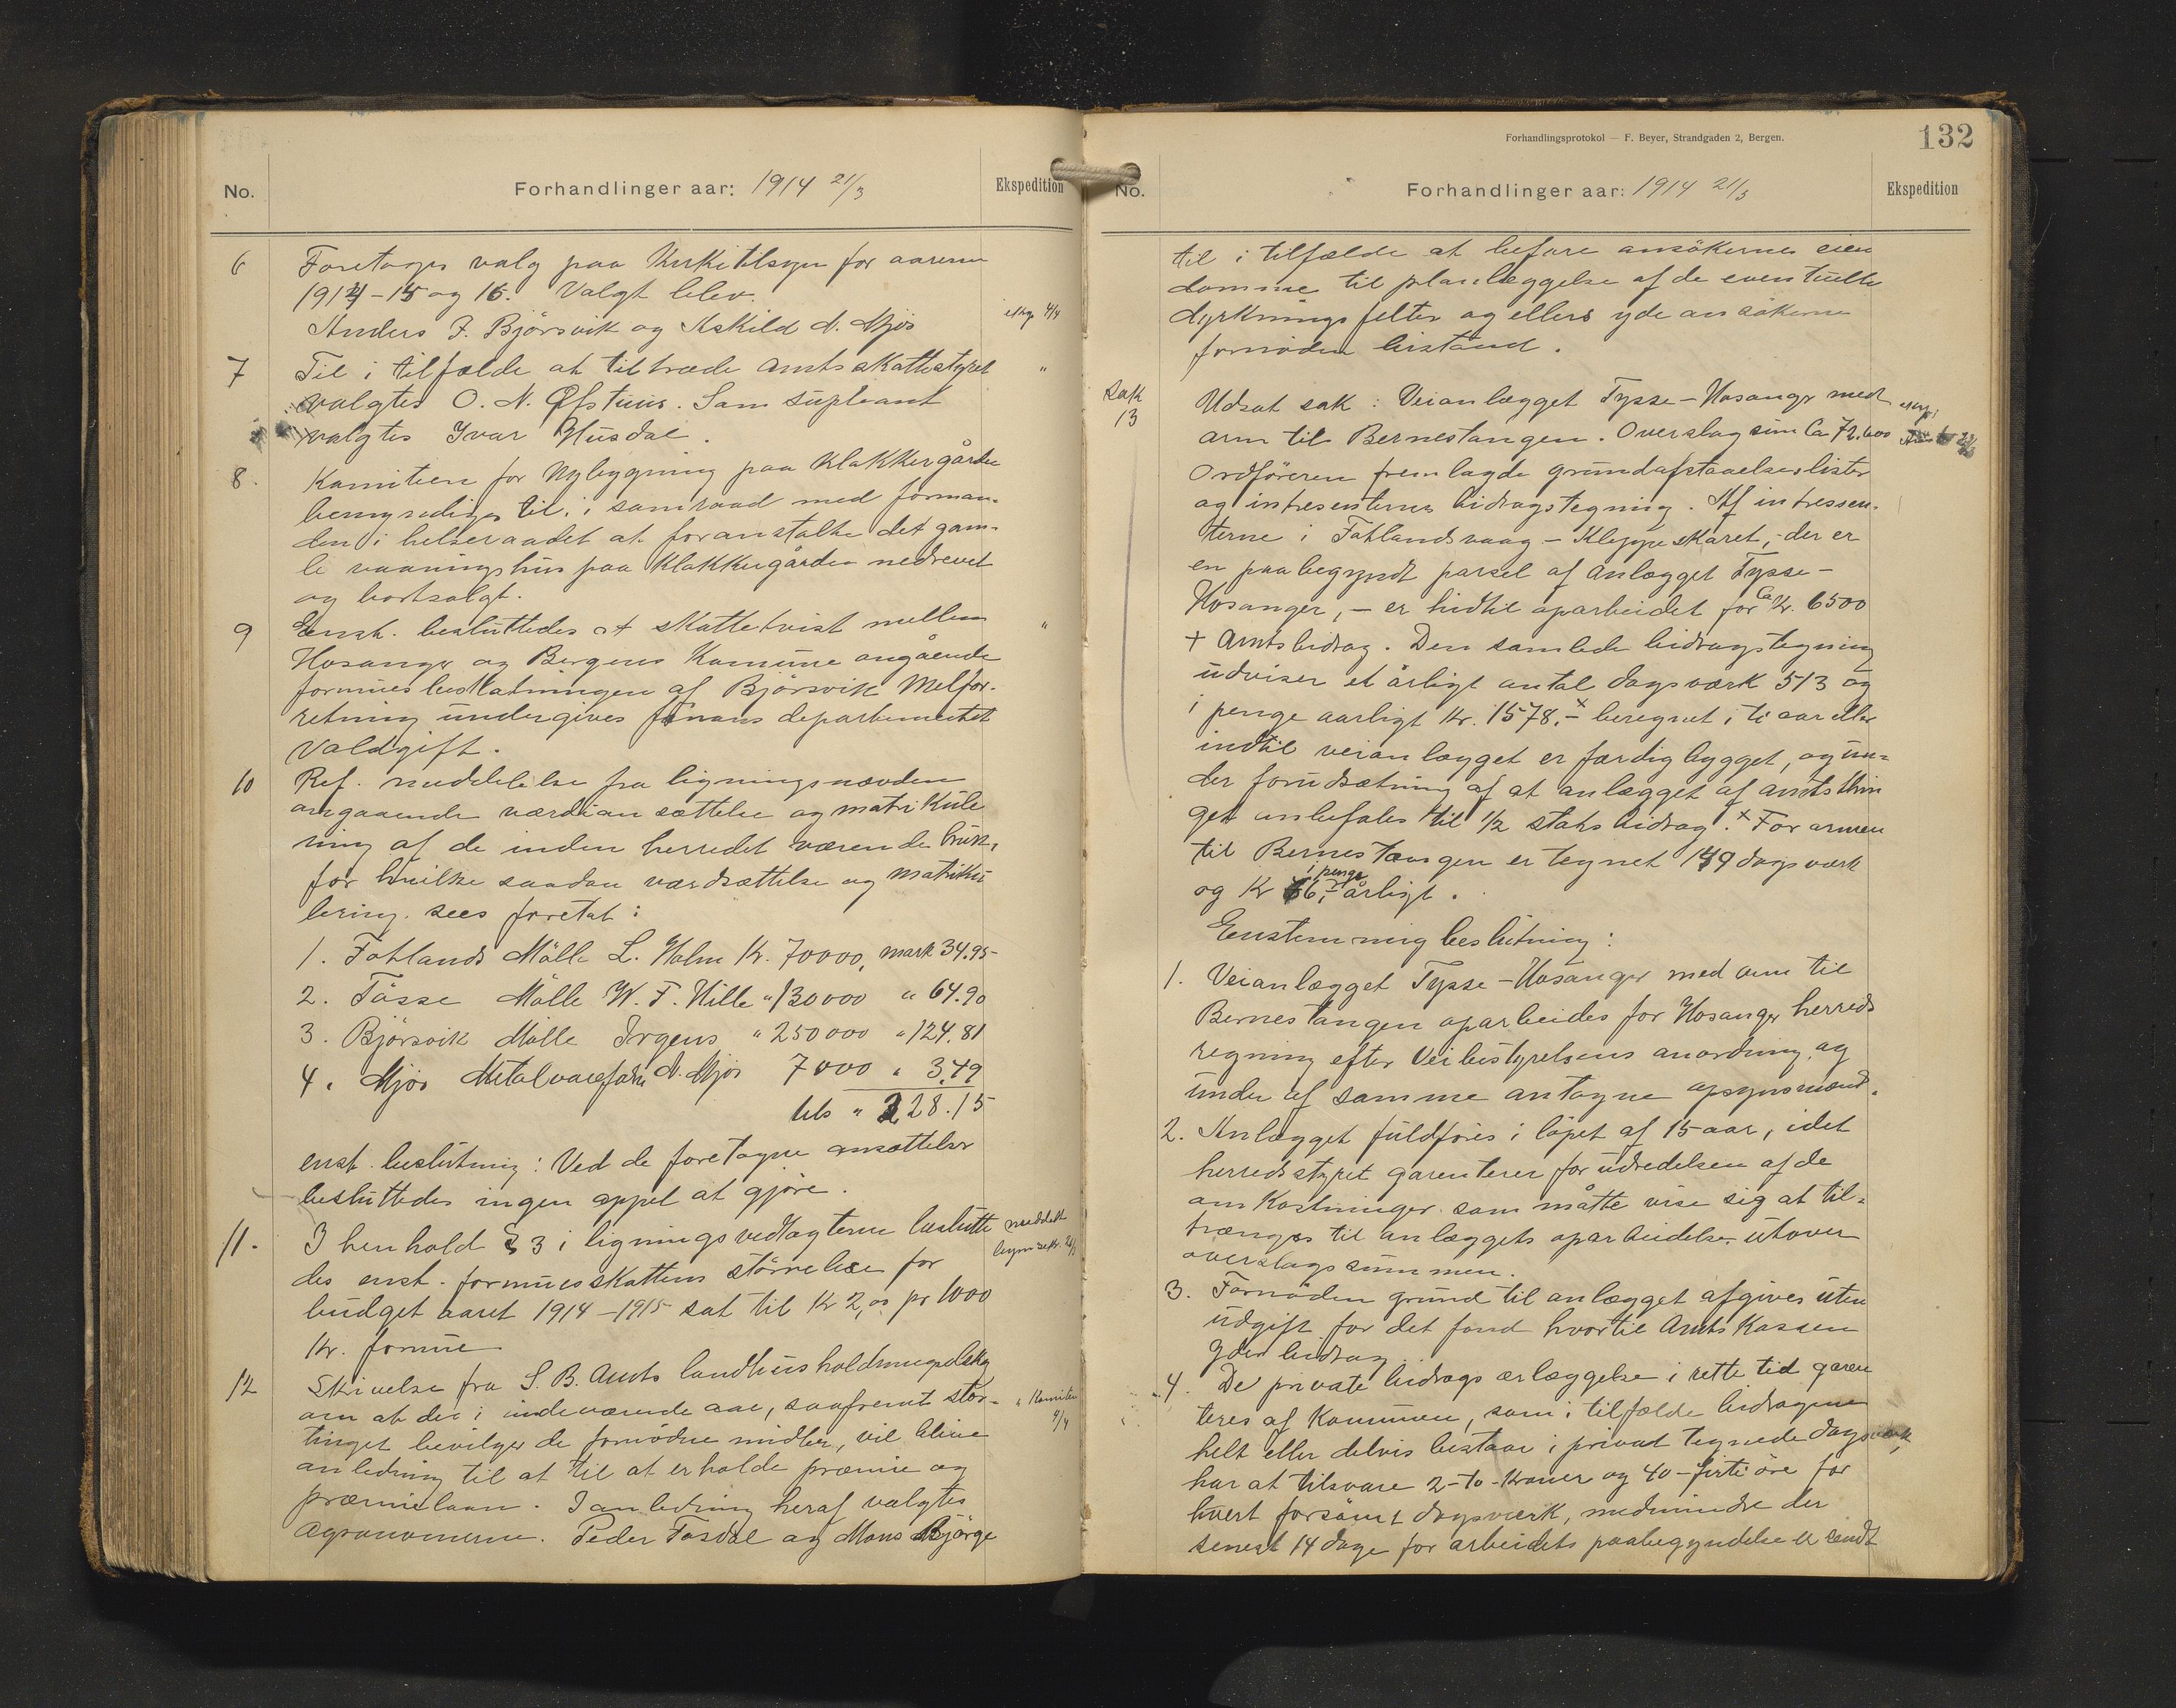 No. Forhandlinger aar: 1914 21/3 Ekspedition
6 Foretages valg paa Kirketilsyn for aarene
1914-15 og 16. Valgt blev.
Anders J. Björsvik og Askild A. Mjös eksp 4/4
7 Til i tilfælde at tiltræde amtsskattestyret "
valgtes O. N. Øfsthus. Som supleant
valgtes Ivar Husdal.
8. Komiteen for Nybygning paa Klakkergården
bemyndiges til, i samraad med forman-
den i helseraadet at foranstalte det gam-
le vaaningshus paa Klakkergården nedrevet
og bortsolgt.
9 Enst. besluttedes at skattetvist mellem "
Hosanger og Bergens Komune angående
formuesbeskatningen af Björsvik Melfor-
retning undergives finansdepartementet
Voldgift.
10 Ref. meddelelse fra ligningsnævnden
angaaende værdiansættelse og matrikule
ring af de inden herredet værende bruk,
for hvilke saadan værdsættelse og matriku
lering sees foretat:
1. Fotlands Mölle L. Holm Kr. 70000, mark 34.95
2. Tösse Mölle W. F. Hille " 130000 " 64.90
3. Björsvik Mölle Irgens " 250000 " 124.81
4. Mjös Metalvarefabr. N. Mjös 7000 " 3.49
tils " 228.15
enst. beslutning: Ved de foretagne ansættelser
besluttedes ingen appel at gjöre.
11. I henhold § 3 i ligningsvedtægterne beslutte meddelt
des enst. formuesskattens störrelse for
budgetaaret 1914-1915 sat til Kr 2,00 pr 1000
Kr. formue
12 Skrivelse fra S. B. Amts landhusholdningsselskap
om at der i indeværende aar, saafremt stor- " Komiteen
tinget bevilger de fornødne midler, vil blive 4/4
anledning til at til at erholde præmie og
præmielaan. I anledning heraf valgtes
Agronomerne. Peder Fosdal og Mons Bjørge
Forhandlingsprotokol — F. Beyer, Strandgaden 2, Bergen.
132
No. Forhandlinger aar: 1914 21/3 Ekspedition
til i tilfælde at befare ansökernes eien
domme til planlæggelse af de eventuelle
dyrkningsfelter og ellers yde ansökerne
fornöden bistand.
Sak
13 Udsat sak: Veianlægget Tysse-Hosanger med
arm til Bernestangen. Overslagsum Ca 72.600
Ordföreren fremlagde grundafstaaelseslister
og intresenternes bidragstegning. Af intressen-
terne i Fotlandsvaag - Kleppeskaret, - der er
en paabegyndt parsel af anlægget Tysse-
Hosanger, - er hidtil oparbeidet for Ca Kr. 6500
+ Amtsbidrag. Den samlede bidragstegning
udviser et årligt antal dagsværk 513 og
i penge aarligt Kr. 1578.-x beregnet i ti aar eller
indtil veianlægget er færdigbygget, og un-
der forudsætning af at anlægget af amtsthin
get anbefales til 1/2 stats bidrag. x For armen
til Bernestangen er tegnet 149 dagsværk
i penge
og Kr 66,- årligt.
Enstemmig beslutning:
1. Veianlægget Tysse-Hosanger med arm til
Bernestangen oparbeides for Hosanger herreds
regning efter Veibestyrelsens anordning, og
under af samme antagne opsynsmænd.
2. Anlægget fuldføres i løpet af 15 aar, idet
herredsstyret garenterer for udredelsen af de
omkostninger som måtte vise sig at til-
trænges til anlæggets oparbeidelse utover
overslagssummen.
3. Fornøden grund til anlægget afgives uten
udgift for det fond hvortil Amtskassen
yder bidrag
4. De private bidrags erlæggelse i rette tid garen
teres af Kommunen, som i tilfælde bidragene
helt eller delvis bestaar i privat tegnede dagsværk,
har at tilsvare 2-to-kroner og 40-firti øre for
hvert forsømt dagsværk, medmindre der
senest 14 dage før arbeidets paabegyndelse er sendt